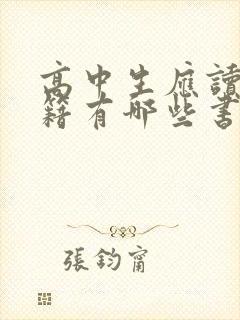 高中生應讀
籍有哪些書
張鈞甯